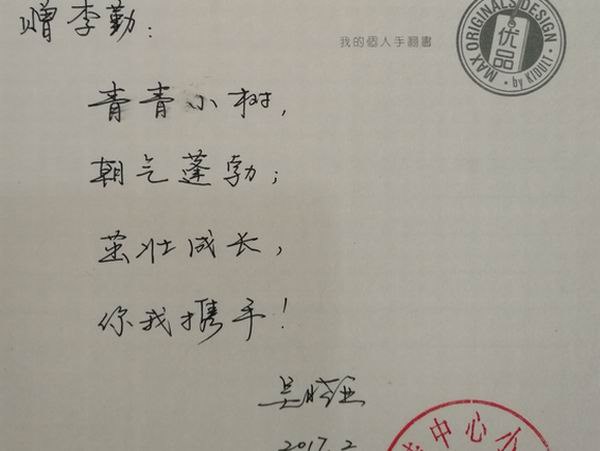 赠李勤:
我的個人手翻書
MAX ORIGINALS DESIGN
优品
by KIDULT
青青小树,
朝气蓬勃;
茁壮成长,
你我携手!
吴晓亚
2017.2
中心小